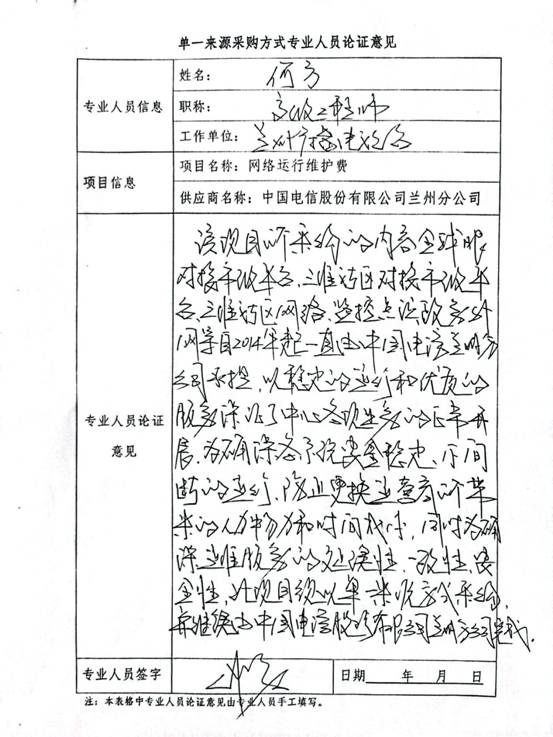 单一来源采购方式专业人员论证意见
专业人员信息
姓名: 何方
职称: 高级工程师
工作单位: 兰州广播电视台
项目信息
项目名称: 网络运行维护费
供应商名称: 中国电信股份有限公司兰州分公司
专业人员论证意见
该项目所采购的内容全球眼
对接市级平台、三维社区对接市级平
台、三维社区网络、监控点该政务外
网等自2014年起一直由中国电信兰州分
公司承担,以稳定的运行和优质的
服务保证了中心各项业务的正常开
展,为确保各系统安全稳定、不间
断的运行,防止更换运营商所带
来的人力物力和时间成本,同时为确
保运维服务的处理性、一致性、安
全性,此项目须以单一来源方式采购,
并继续由中国电信股份有限公司兰州分公司完成.
专业人员签字
日期 年 月 日
注: 本表格中专业人员论证意见由专业人员手工填写。